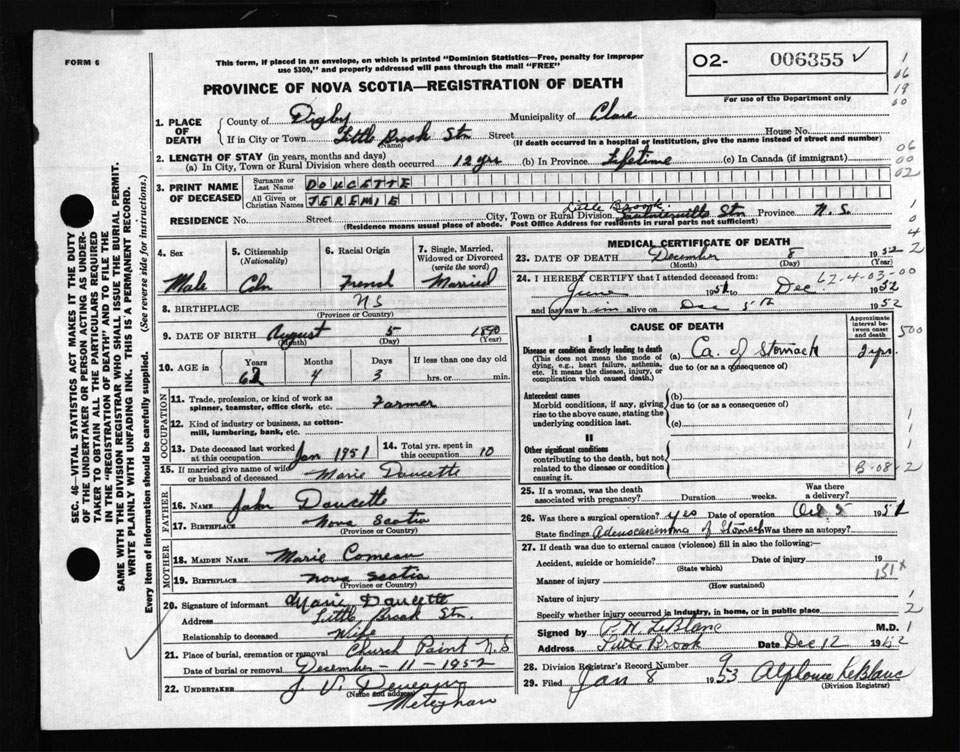 FORM 6
This form, if placed in an envelope, on which is printed "Dominion Statistics—Free, penalty for improper
use $300," and properly addressed will pass through the mail "FREE"
PROVINCE OF NOVA SCOTIA—REGISTRATION OF DEATH
O2- 006355 ✓
For use of the Department only
1. PLACE OF DEATH
County of Digby Municipality of Clare
If in City or Town Little Brook Stn Street House No.
(Name) (If death occurred in a hospital or Institution, give the name instead of street and number)
2. LENGTH OF STAY (in years, months and days)
(a) In City, Town or Rural Division where death occurred 12 yrs (b) In Province Lifetime (c) In Canada (if immigrant)
3. PRINT NAME OF DECEASED
Surname or Last Name DOUCETTE
All Given or Christian Names JEREMIE
Little Brook
RESIDENCE No. Street City, Town or Rural Division Saulnierville Stn Province N. S.
(Residence means usual place of abode. Post Office Address for residents in rural parts not sufficient)
4. Sex Male
5. Citizenship (Nationality) Cdn
6. Racial Origin French
7. Single, Married, Widowed or Divorced (write the word) Married
8. BIRTHPLACE NS
(Province or Country)
9. DATE OF BIRTH August 5 1890
(Month) (Day) (Year)
10. AGE in Years 62 Months 4 Days 3 If less than one day old hrs. or min.
OCCUPATION
11. Trade, profession, or kind of work as spinner, teamster, office clerk, etc. Farmer
12. Kind of industry or business, as cotton-mill, lumbering, bank, etc.
13. Date deceased last worked at this occupation Jan 1951
14. Total yrs. spent in this occupation 10
15. If married give name of wife or husband of deceased Marie Doucette
FATHER
16. NAME John Doucette
17. BIRTHPLACE Nova Scotia
(Province or Country)
MOTHER
18. MAIDEN NAME Marie Comeau
19. BIRTHPLACE Nova Scotia
(Province or Country)
20. Signature of informant Marie Doucette
Address Little Brook Stn.
Relationship to deceased Wife
21. Place of burial, cremation or removal Church Point N.S
Date of burial or removal December - 11 - 1952
22. UNDERTAKER J. V. Deveau
(Name and address) Meteghan
MEDICAL CERTIFICATE OF DEATH
23. DATE OF DEATH December 8 1952
(Month) (Day) (Year)
24. I HEREBY CERTIFY that I attended deceased from: 62-4-03-00
June 1951 to Dec. 1952
and last saw him alive on Dec 5th 1952
CAUSE OF DEATH
Approximate interval between onset and death
I
Disease or condition directly leading to death (a) Ca. of Stomach 2 yrs
(This does not mean the mode of dying, e.g., heart failure, asthenia, etc. It means the disease, injury, or complication which caused death.)
due to (or as a consequence of)
Antecedent causes (b)
Morbid conditions, if any, giving rise to the above cause, stating the underlying condition last.
due to (or as a consequence of)
(c)
II
Other significant conditions
contributing to the death, but not related to the disease or condition causing it.
B-08-2
25. If a woman, was the death associated with pregnancy? Duration weeks. Was there a delivery?
26. Was there a surgical operation? yes Date of operation Oct 5 1951
State findings Adenocarcinoma of Stomach Was there an autopsy?
27. If death was due to external causes (violence) fill in also the following:—
Accident, suicide or homicide? Date of injury 19
(State which) 151x
Manner of injury
(How sustained)
Nature of injury
Specify whether injury occurred in industry, in home, or in public place
Signed by P. H. LeBlanc M.D.
Address Little Brook Date Dec 12 1952
28. Division Registrar's Record Number 9
29. Filed Jan 8 1953 Alphonse LeBlanc
(Division Registrar)
SEC. 46—VITAL STATISTICS ACT MAKES IT THE DUTY
OF THE UNDERTAKER OR PERSON ACTING AS UNDER-
TAKER TO OBTAIN ALL THE PARTICULARS REQUIRED
IN THE "REGISTRATION OF DEATH" AND TO FILE THE
SAME WITH THE DIVISION REGISTRAR WHO SHALL ISSUE THE BURIAL PERMIT.
WRITE PLAINLY WITH UNFADING INK. THIS IS A PERMANENT RECORD.
Every item of Information should be carefully supplied. (See reverse side for instructions.)
1
06
19
00
06
00
02
1
0
4
2
500
1
1
2
1
2